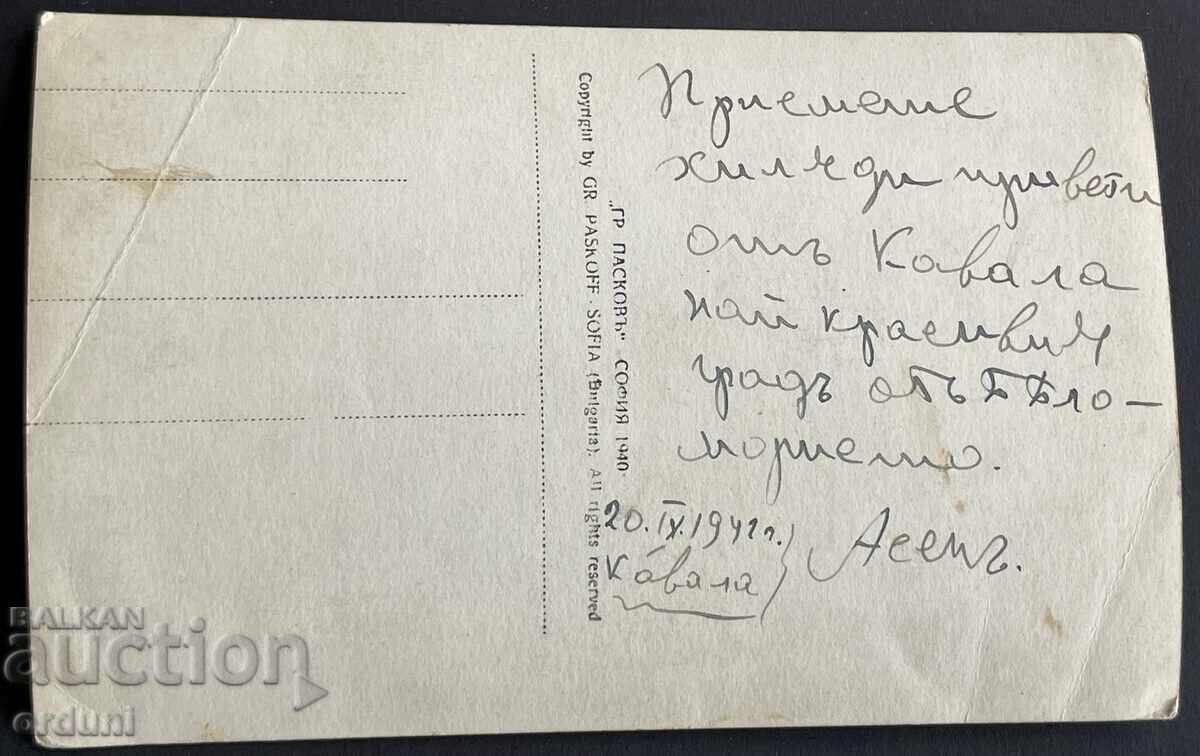 Приемете
хиляди привети
отъ Кавала
най красивия
градъ отъ Бѣло-
морието.
20.IX.1941г.
Кавала
Асенъ.
„ГР ПАСКОВЪ" СОФИЯ 1940
Copyright by GR PASKOFF - SOFIA (Bulgaria). All rights reserved
BALKAN
auction
orduni